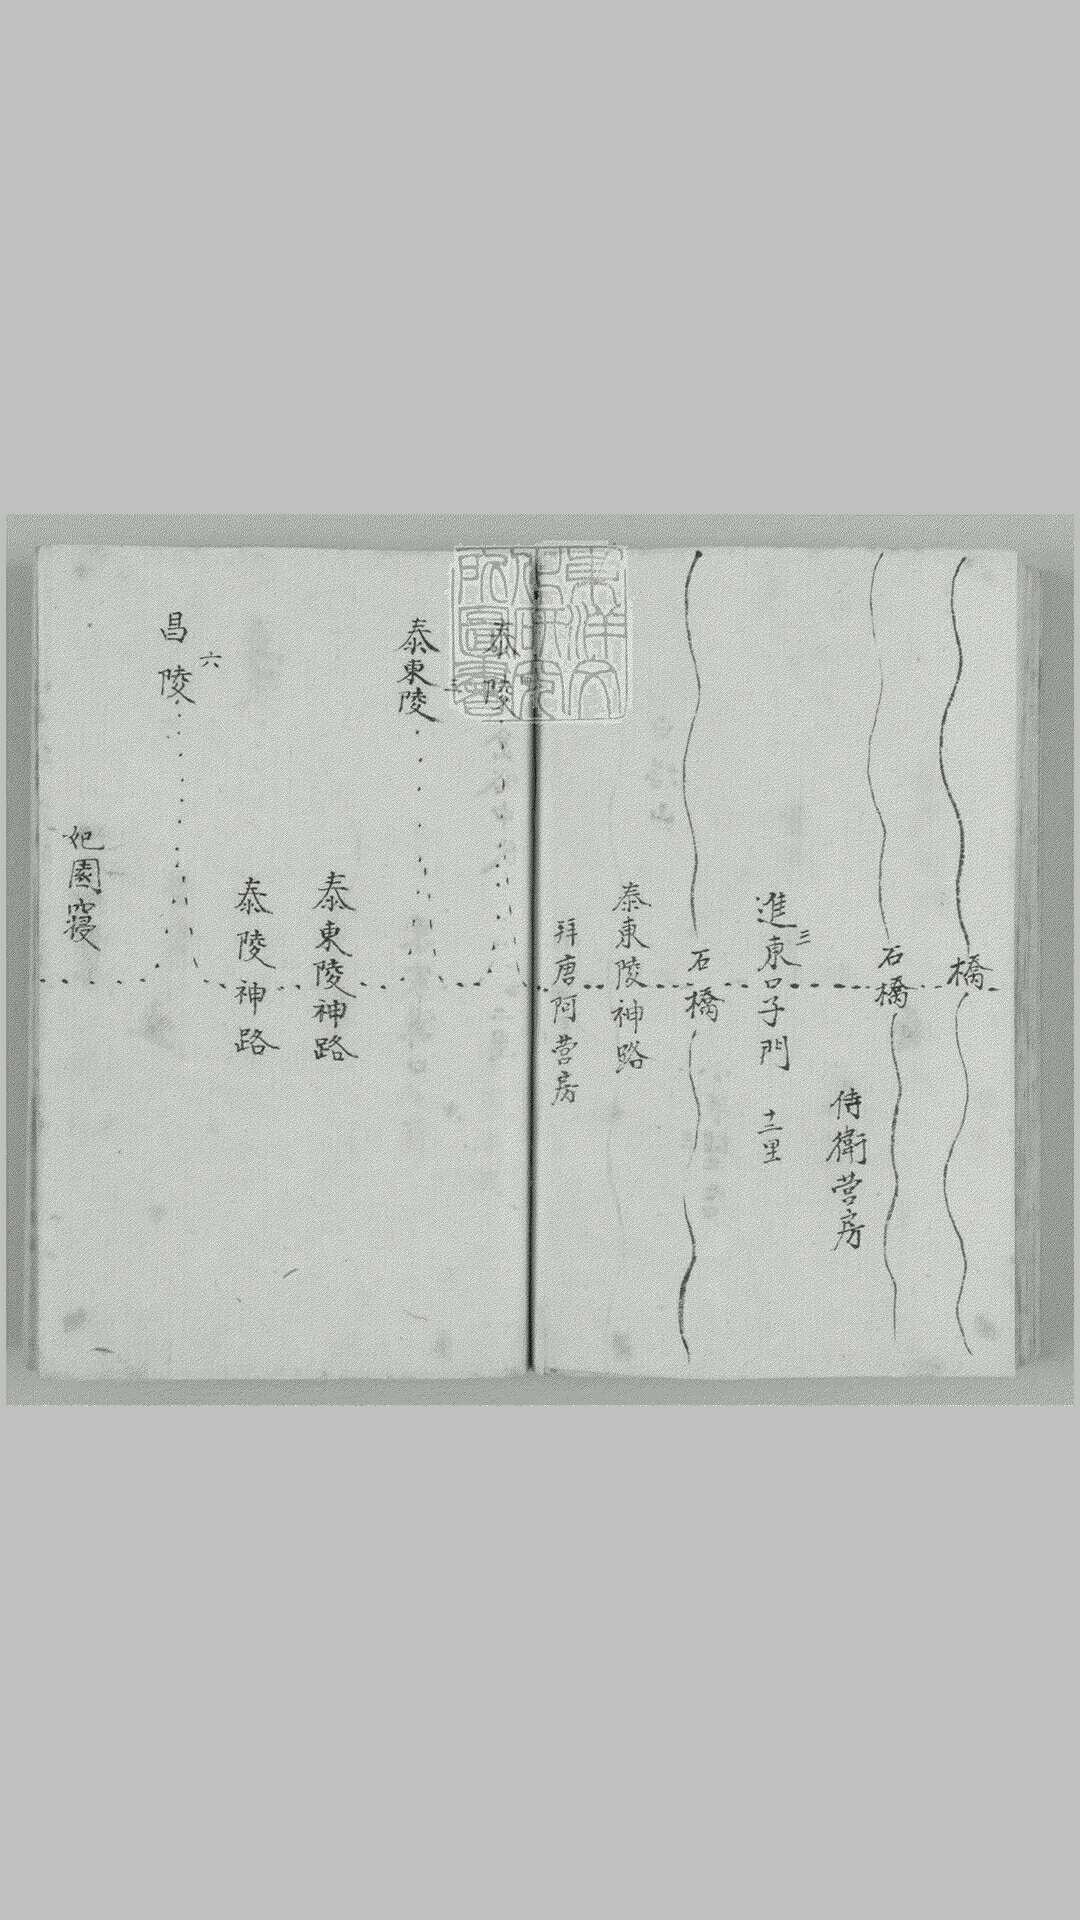 橋
石橋
侍衛营房
進東口子門
三
十二里
石橋
泰東陵神路
拜唐阿营房
東洋文
庫研究
所圖書
泰陵
三
泰東陵
泰東陵神路
泰陵神路
六
昌陵
妃園寝